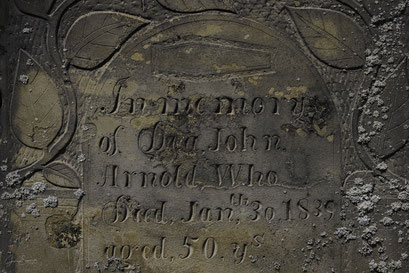 In memory
of Dea John
Arnold, Who
Died, Jan, 30, 1839
aged, 50. ys.